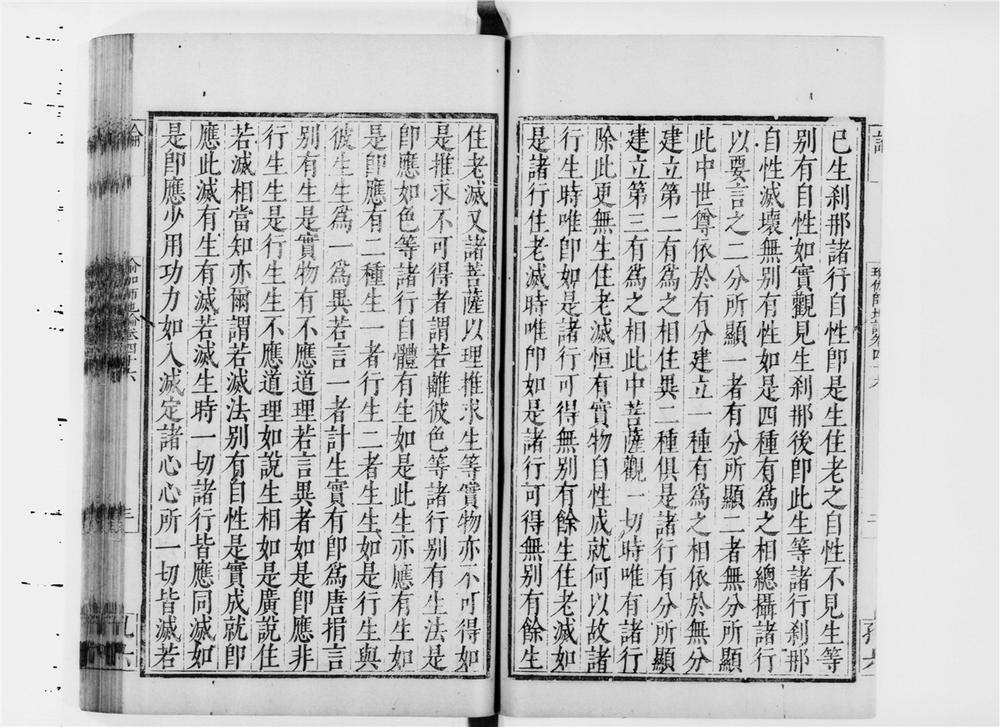 已生刹那諸行自性即是生住老之自性不見生等
別有自性如實觀見生刹那後即此生等諸行刹那
自性滅壞無別有性如是四種有為之相總攝諸行
以要言之二分所顯一者有分所顯二者無分所顯
此中世尊依於有分建立一種有為之相依於無分
建立第二有為之相住異二種俱是諸行有分所顯
建立第三有為之相此中菩薩觀一切時唯有諸行
除此更無生住老滅恒有實物自性成就何以故諸
行生時唯即如是諸行可得無別有餘生住老滅如
是諸行住老滅時唯即如是諸行可得無別有餘生
住老滅又諸菩薩以理推求生等實物亦不可得如
是推求不可得者謂若離彼色等諸行別有生法是
即應如色等諸行自體有生如是此生亦應有生如
是即應有二種生一者行生二者生生如是行生與
彼生生為一為異若言一者計生實有即為唐捐言
別有生是實物有不應道理若言異者如是即應非
行生生是行生生不應道理如說生相如是廣說住
若滅相當知亦爾謂若滅法別有自性是實成就即
應此滅有生有滅若滅生時一切諸行皆應同滅如
是即應少用功力如入滅定諸心心所一切皆滅若